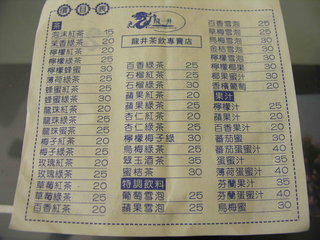 價目表
龍井
龍井茶飲專賣店
茶
泡沫紅茶 15
茉香綠茶 20
檸檬紅茶 20
檸檬綠茶 25
檸檬蜂蜜 30
薄荷綠茶 25
蜂蜜紅茶 25
蜂蜜綠茶 30
龍珠紅茶 20
龍珠綠茶 25
龍珠蜜茶 30
梅子紅茶 20
梅子綠茶 25
玫瑰紅茶 20
玫瑰綠茶 25
草莓紅茶 20
草莓綠茶 25
百香紅茶 20
百香綠茶 25
石榴紅茶 20
石榴綠茶 25
蘋果紅茶 20
蘋果綠茶 25
杏仁紅茶 20
杏仁綠茶 25
檸檬梅子綠 30
烏梅綠茶 30
翠玉酒茶 35
蜜桔茶 30
特調飲料
百香雪泡 25
蘋果雪泡 25
百香雪泡 25
草莓雪泡 25
烏梅雪泡 30
金桔雪泡 30
檸檬雪泡 30
檸檬椰果 30
椰果蜜汁 30
香檳葡萄 20
果汁
檸檬汁 25
蘋果汁 20
百香果汁 20
番茄蜜 30
番茄蜜汁 40
蛋蜜汁 35
薄荷蛋蜜汁 40
芬蘭果汁 35
芬蘭蛋蜜汁 40
烏梅蜜 30